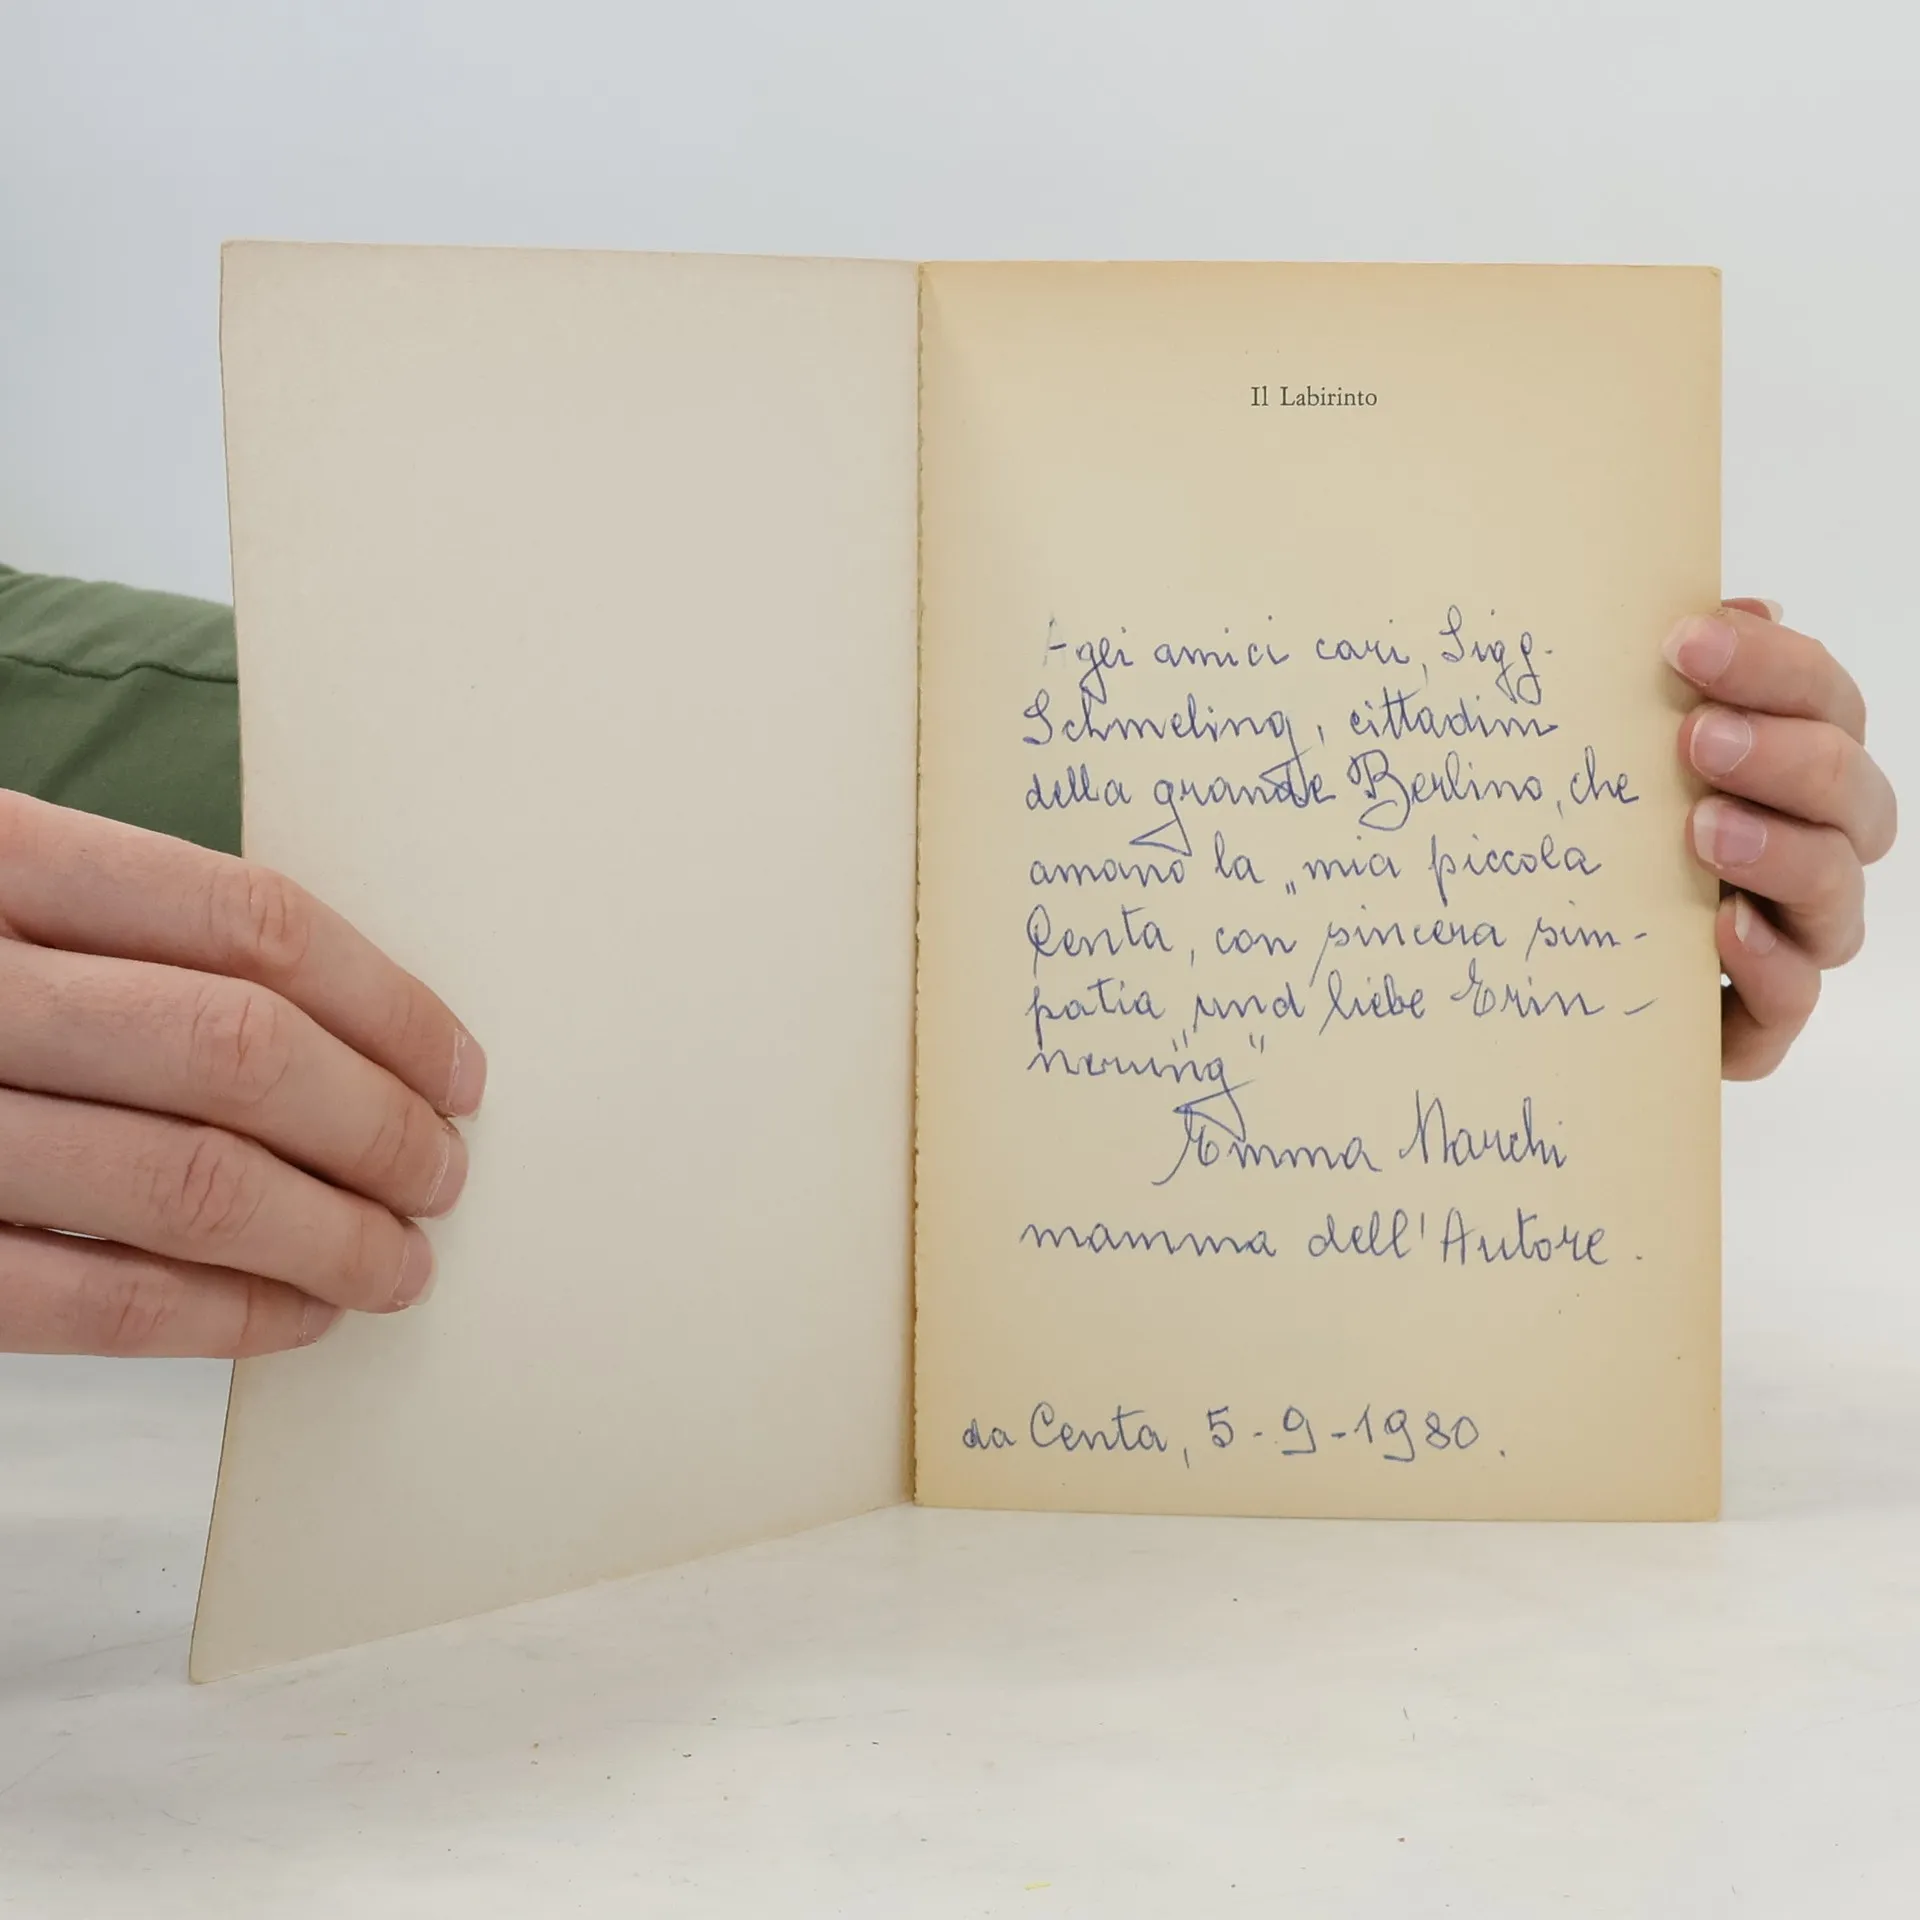 Il Labirinto
Agli amici cari, Sigg.
Schmeling, cittadini
della grande Berlino, che
amano la „mia piccola
Centa, con sincera sim-
patia „und liebe Erin-
nerung"
Emma Marchi
mamma dell'Autore.
da Centa, 5-9-1980.